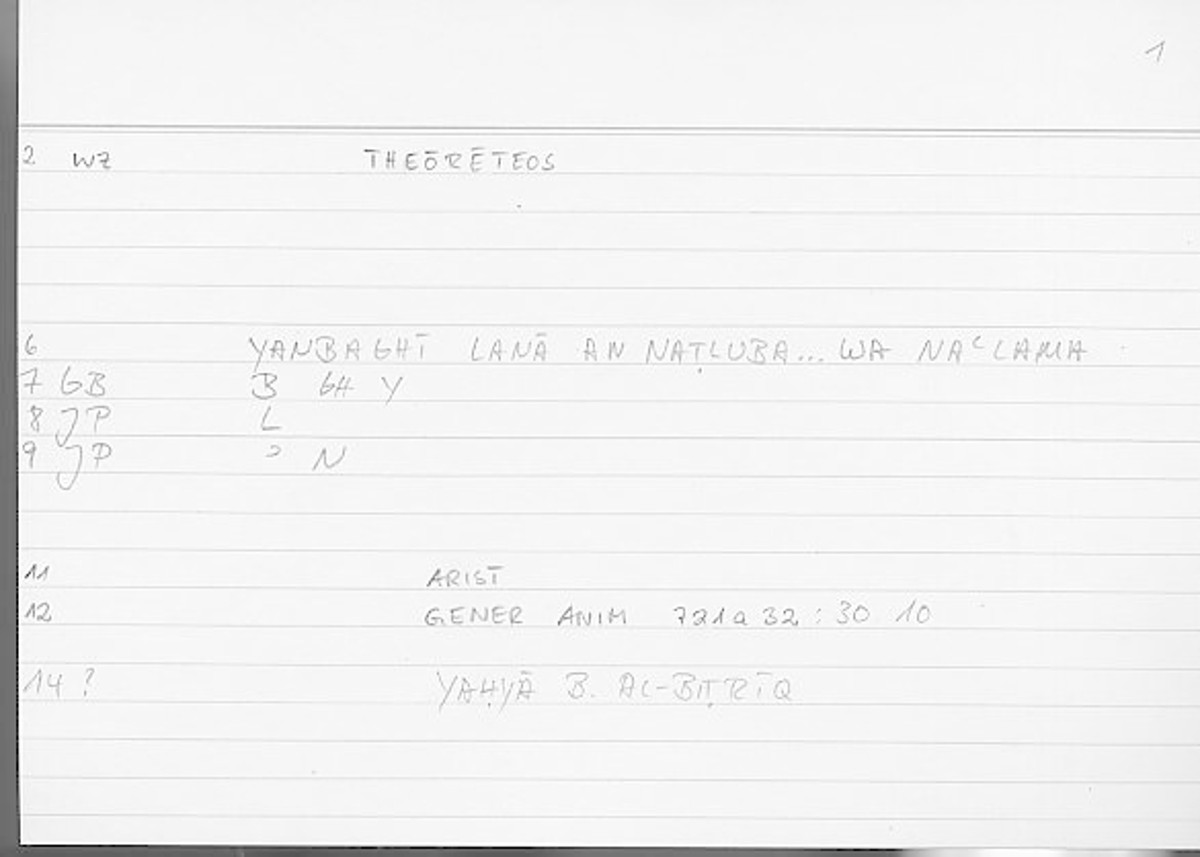 1
2 WZ THEŌRĒTEOS
6 YANBAGHĪ LANĀ AN NAṬLUBA... WA NAᶜLAMA
7 GB B GH Y
8 JP L
9 JP ʾ N
11 ARIST
12 GENER ANIM 721a 32 : 30 10
14 ? YAḤYĀ B. AL-BIṬRĪQ